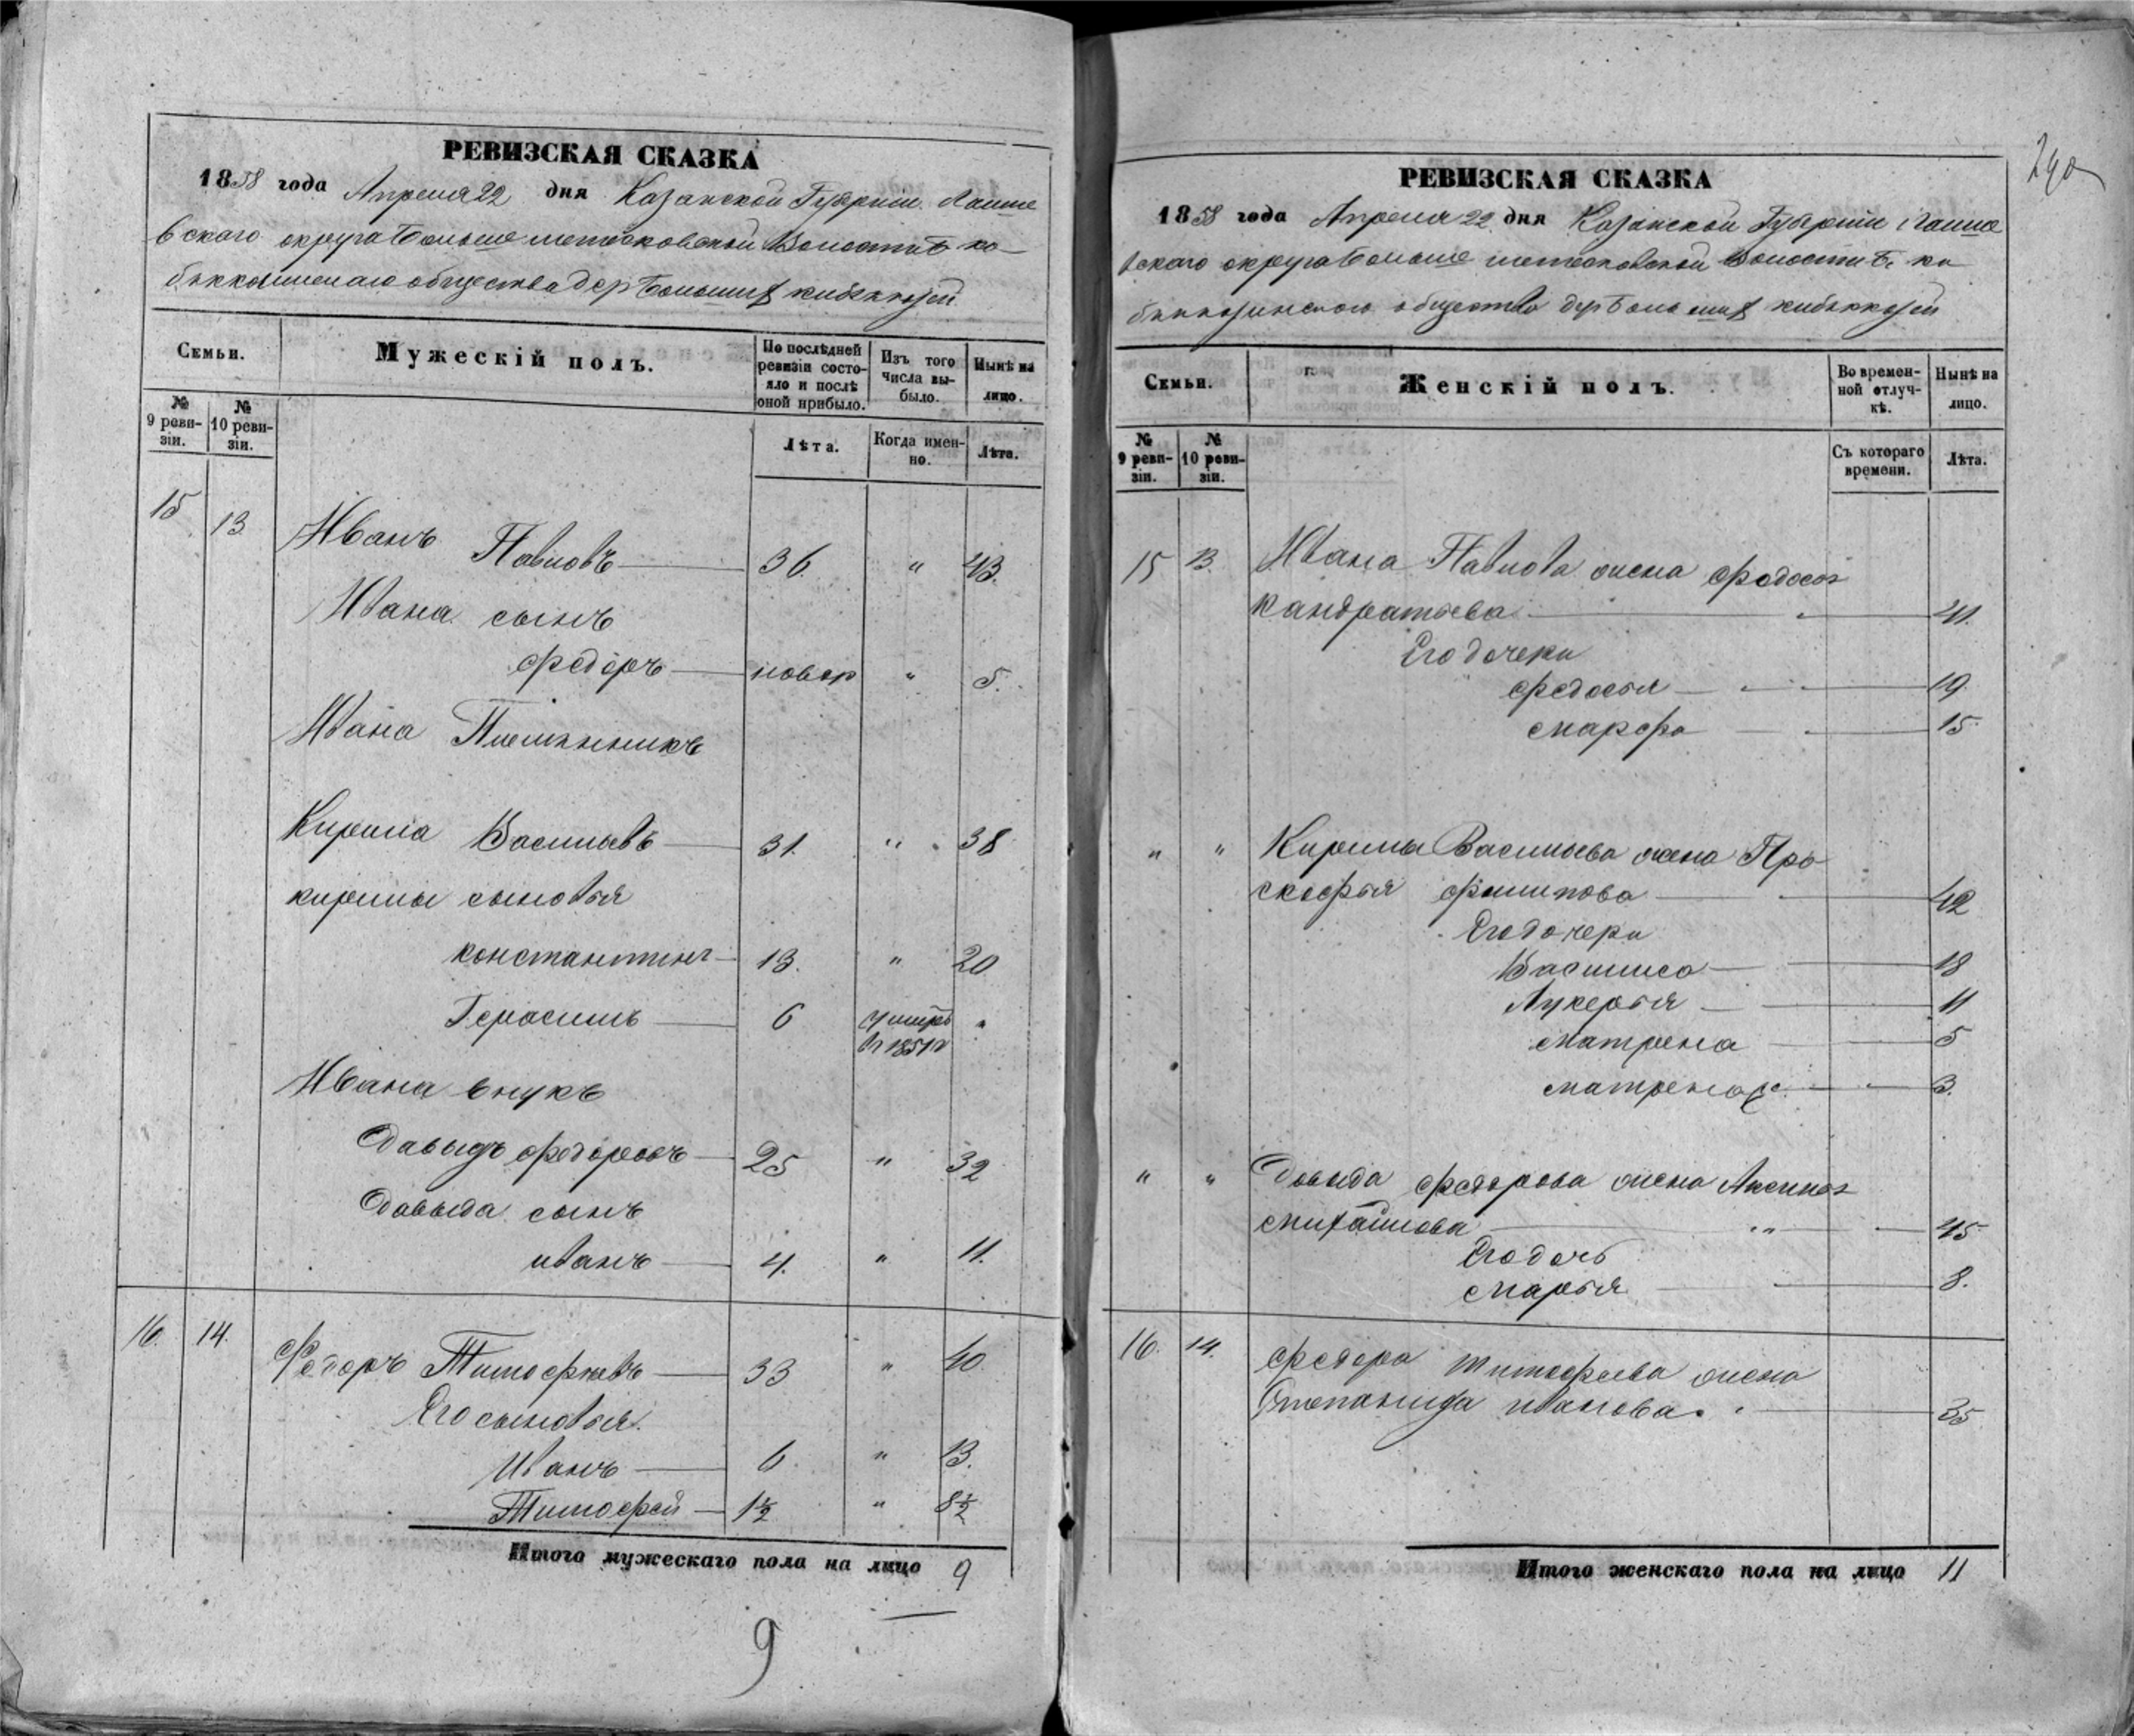 РЕВИЗСКАЯ СКАЗКА
1858 года Апреля 22 дня Казанской Губернiи Лаише
вскаго округа Больше метесковской Волости Б ки
общества дер Большиx кибяккозей
Семьи.
Мужескій полъ.
По послѣдней ревизіи состояло и послѣ оной прибыло.
Изъ того числа выбыло.
Нынѣ на лицо.
№ 9 ревизіи.
№ 10 ревизіи.
Лѣта.
Когда именно.
Лѣта.
15 13 Иванъ Павловъ 36. " 43.
Ивана сынъ
Федоръ новор " 5.
Ивана Племянникъ
Кирила Васильевъ 31. " 38
кирилы сыновья
константинъ 13. " 20
Герасимъ 6 умеръ "
въ 1851 г
Ивана внукъ
Давыдъ Федоровъ 25 " 32
Давыда сынъ
иванъ 4. " 11.
16. 14. Федоръ Тимофеевъ 33 " 40
Его сыновья
Иванъ 6. " 13.
Тимофей 1½ " 8½
Итого мужескаго пола на лицо 9
9
290
РЕВИЗСКАЯ СКАЗКА
1858 года Апреля 22 дня Казанской Губерніи Лаише
вскаго округа Больше метесковской Волости Б. ки
бяккозинского общества дер Большиx кибяккозей
Семьи.
Женскій полъ.
Во временной отлучкѣ.
Нынѣ на лицо.
№ 9 ревизіи.
№ 10 ревизіи.
Съ котораго времени.
Лѣта.
15 13. Ивана Павлова жена Федосья
кандратьева 41.
Его дочери
Федосья 19.
Марфа 15.
" " Кирилы Васильева жена Пра
скофья Филипова 42
Его дочери
Василиса 18
Лукерья 11
Матрена 5
Матрена 3.
" " Давыда Федорова жена Аксинья
Михайлова " 45
Его дочь
Марья 8.
16. 14. Федора тимофеева жена
Степанида иванова 35
Итого женскаго пола на лицо 11